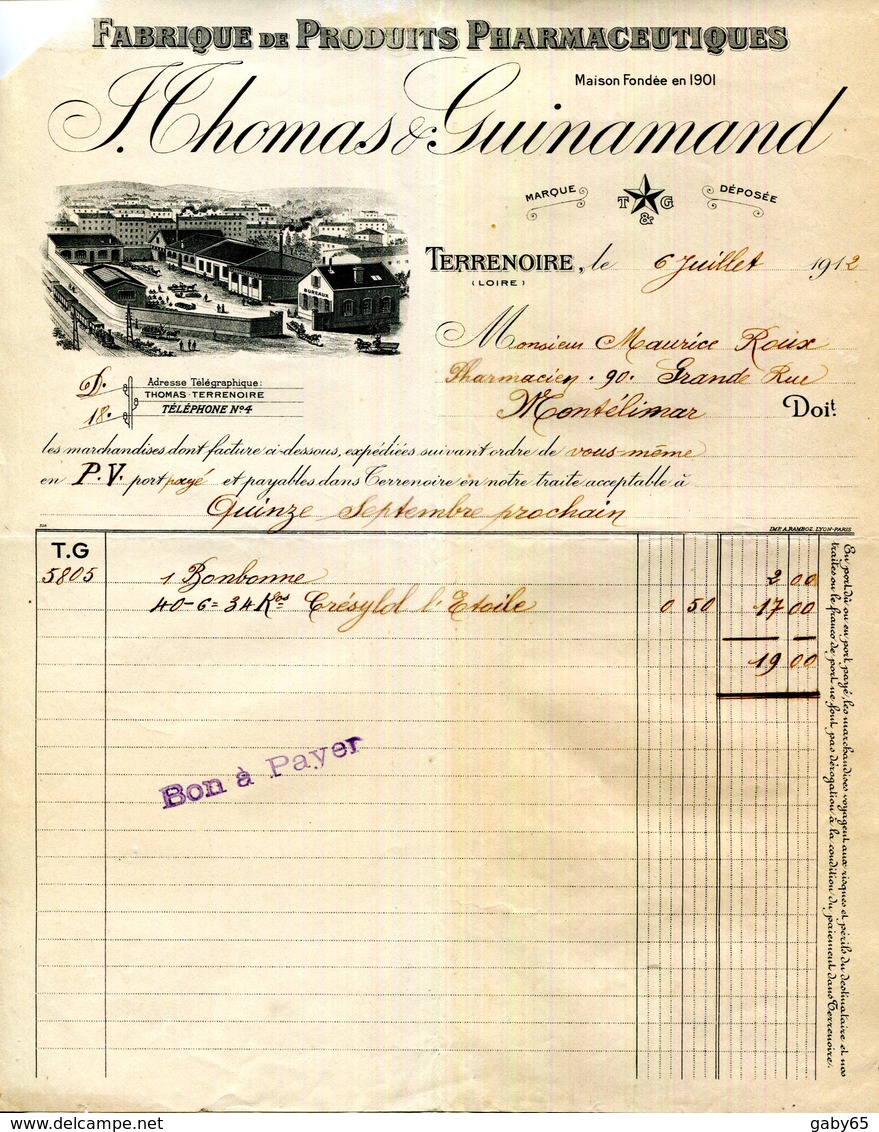 FABRIQUE DE PRODUITS PHARMACEUTIQUES
Maison Fondée en 1901
J. Thomas & Guinamand
MARQUE T & G DÉPOSÉE
BUREAUX
TERRENOIRE, le 6 Juillet 1912
(LOIRE)
Monsieur Maurice Roux
Pharmacien . 90. Grande Rue
Montélimar Doit.
D.
18.
Adresse Télégraphique:
THOMAS-TERRENOIRE
TÉLÉPHONE Nº4
les marchandises dont facture ci-dessous, expédiées suivant ordre de vous-même
en P.V. port payé et payables dans Terrenoire en notre traite acceptable à
Quinze Septembre prochain
IMP. A. RAMBOZ. LYON-PARIS
T.G
5805 1 Bonbonne 2 00
40-6=34 Kos Crésylol l'Etoile 0 50 17 00
19 00
Bon à Payer
En port dû ou en port payé, les marchandises voyagent aux risques et périls du destinataire et nos
traites ou le franco de port ne font pas dérogation à la condition du paiement dans Terrenoire.
delcampe.net
gaby65